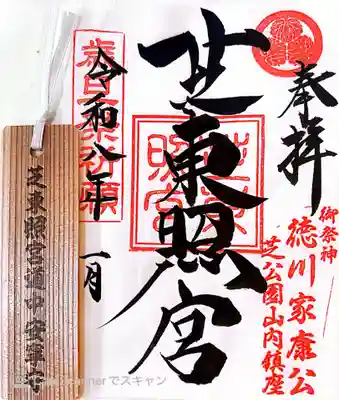 奉拝
御祭神
徳川家康公
芝公園山内鎮座
芝東照宮
令和八年
一月
芝東照宮道中安
でスキャン